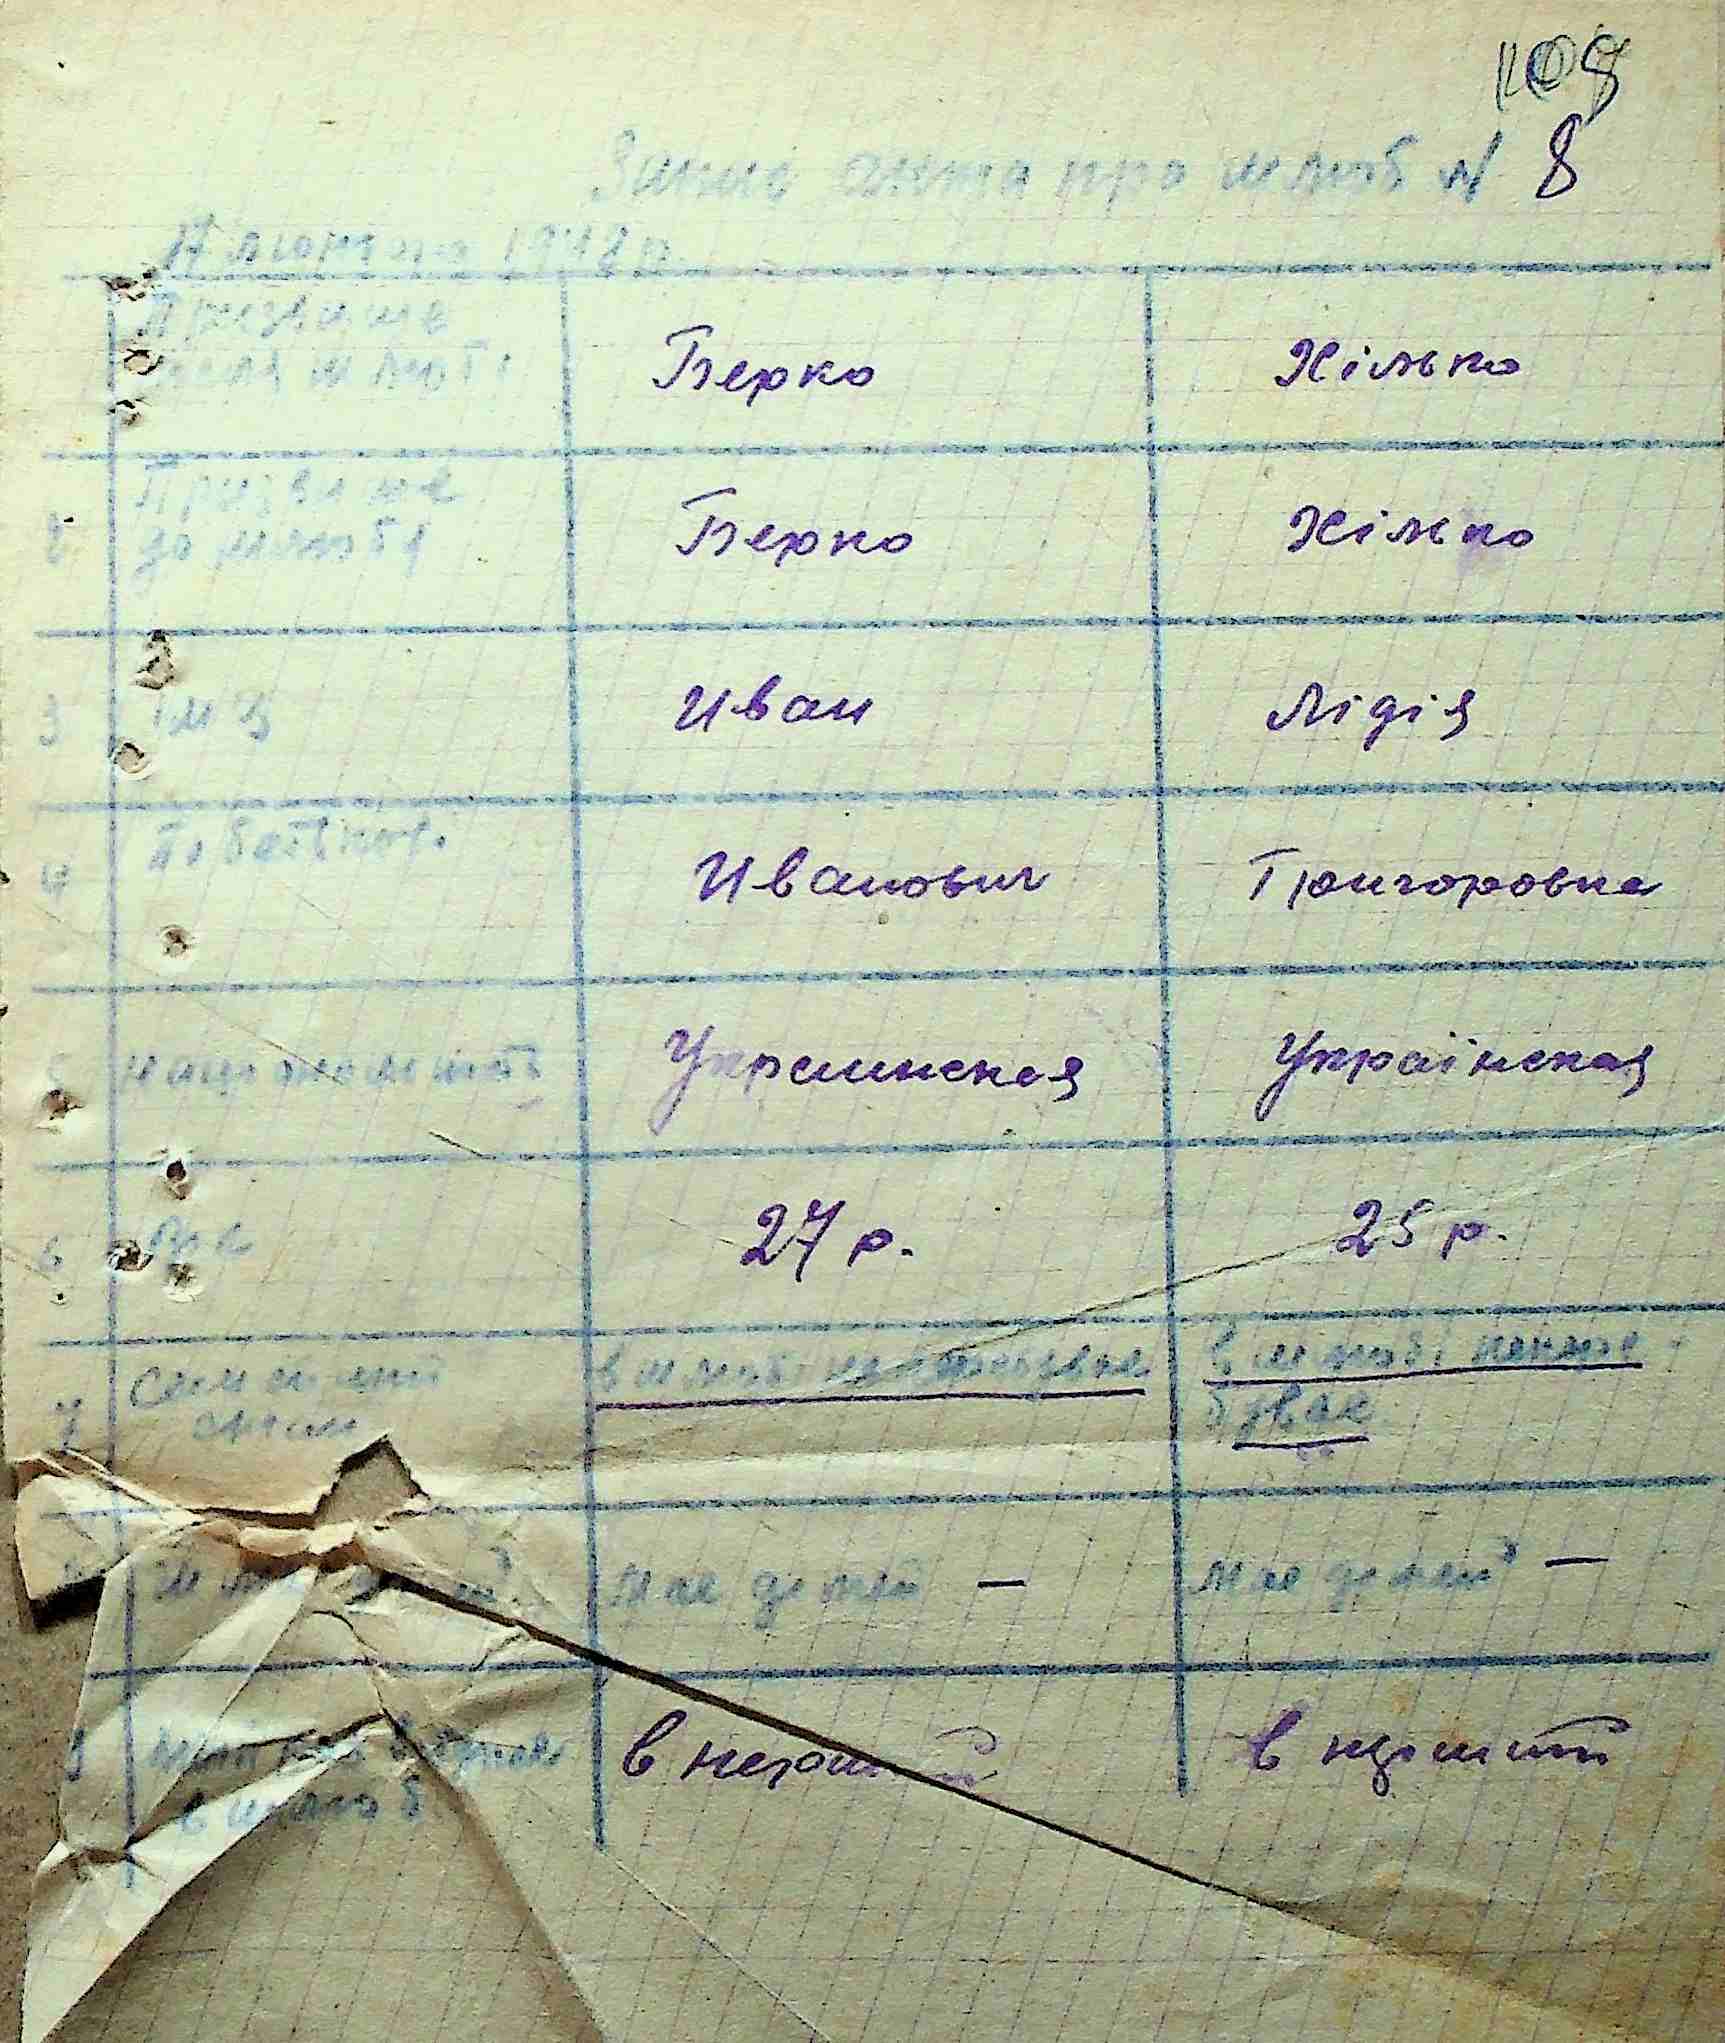 108
Запис акта про шлюб № 8
17 лютого 1948 р.
Прізвище
шлюбі
Берко
Хілько
2
Прізвище
до шлюбу
Берко
Хілько
3
імя
Иван
Лідія
4
По батькові
Иванович
Григоровна
5
национальність
Украинская
Українская
6
Вік
27 р.
25 р.
7
Сімейний
стан
в шлюбі не перебував
в шлюбі
був
має дітей —
має дітей —
в шлюб
в первый
в перший